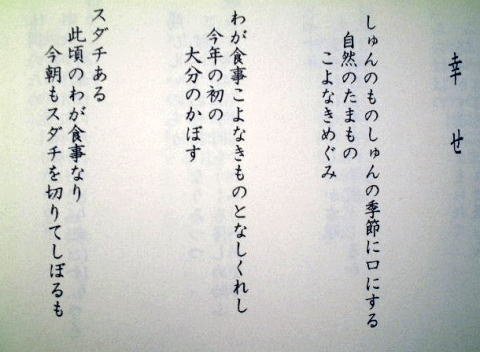 幸せ
しゅんのものしゅんの季節に口にする
自然のたまもの
こよなきめぐみ
わが食事こよなきものとなしくれし
今年の初の
大分のかぼす
スダチある
此頃のわが食事なり
今朝もスダチを切りてしぼるも